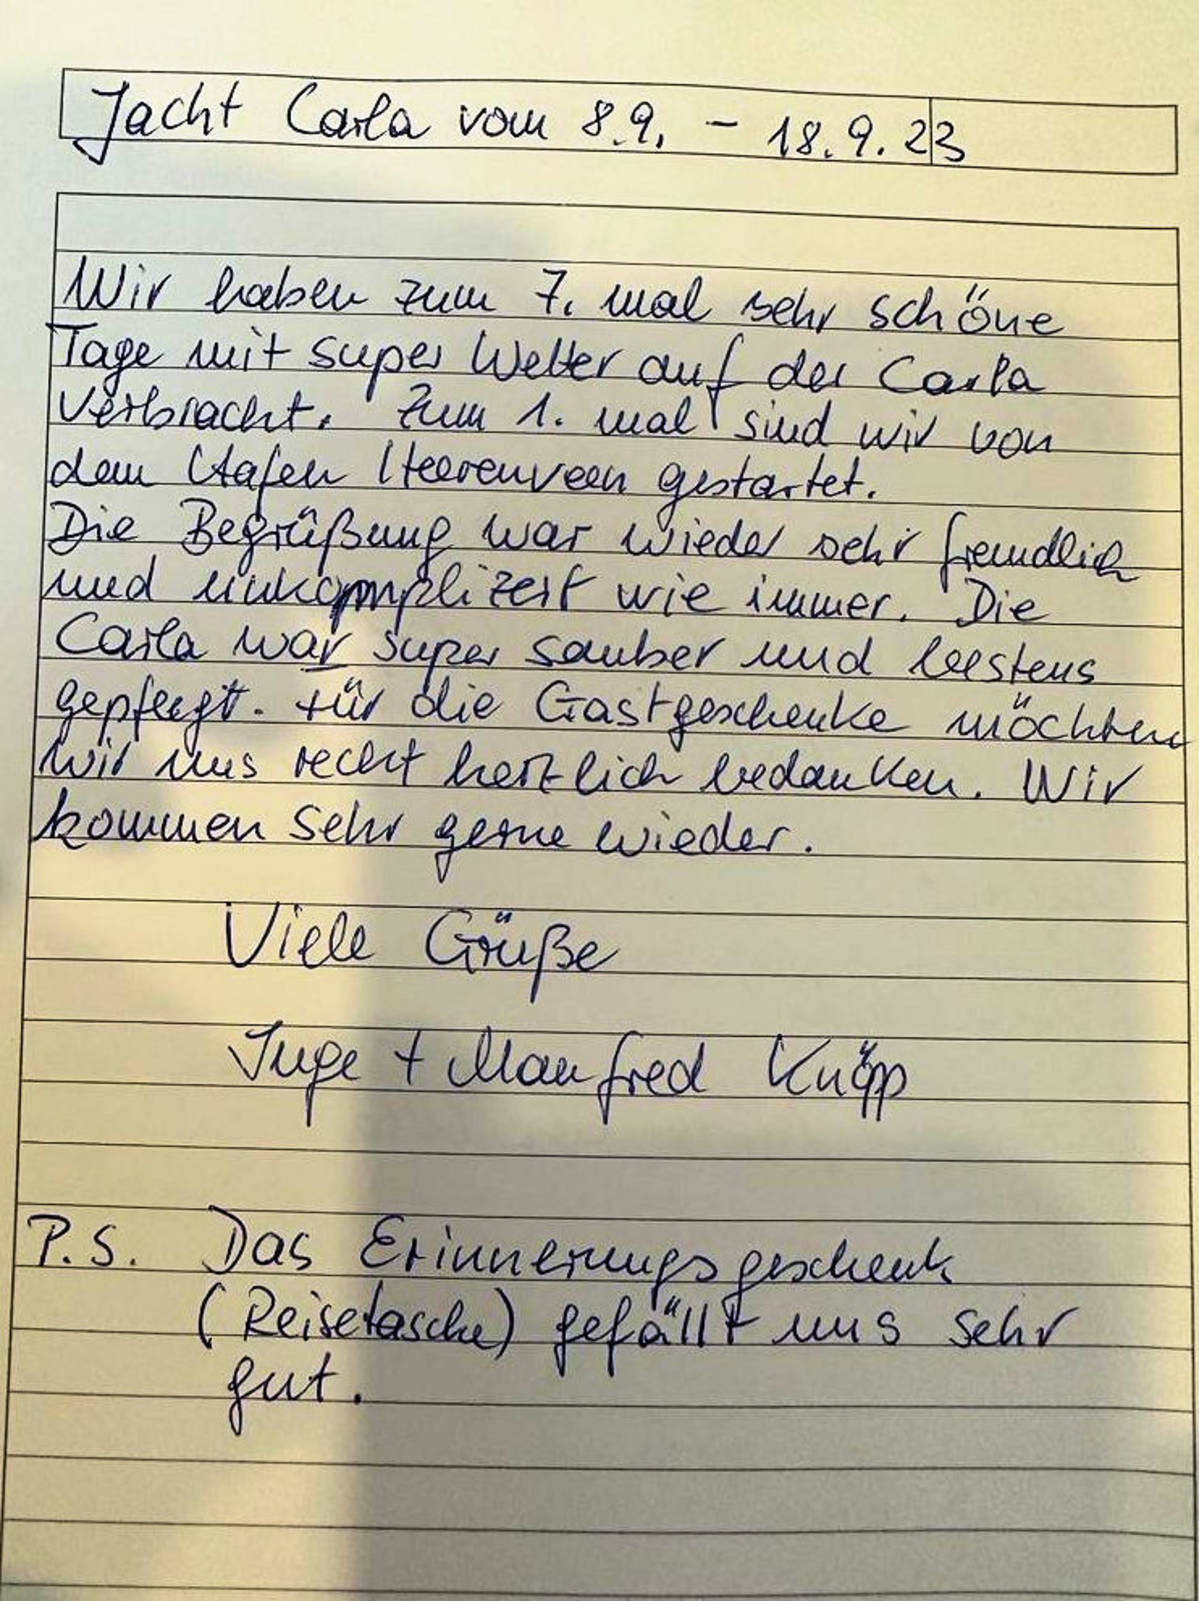 Jacht Carla vom 8.9. - 18.9.23
Wir haben zum 7. mal sehr schöne
Tage mit super Wetter auf der Carla
verbracht. Zum 1. mal sind wir von
dem Hafen Heerenveen gestartet.
Die Begrüßung war wieder sehr freundlich
und unkomplizert wie immer. Die
Carla war super sauber und bestens
gepflegt. Für die Gastgeschenke möchten
wir uns recht herzlich bedanken. Wir
kommen sehr gerne wieder.
Viele Grüße
Inge + Manfred Knöpp
P.S. Das Erinnerungsgeschenk
(Reisetasche) gefällt uns sehr
gut.